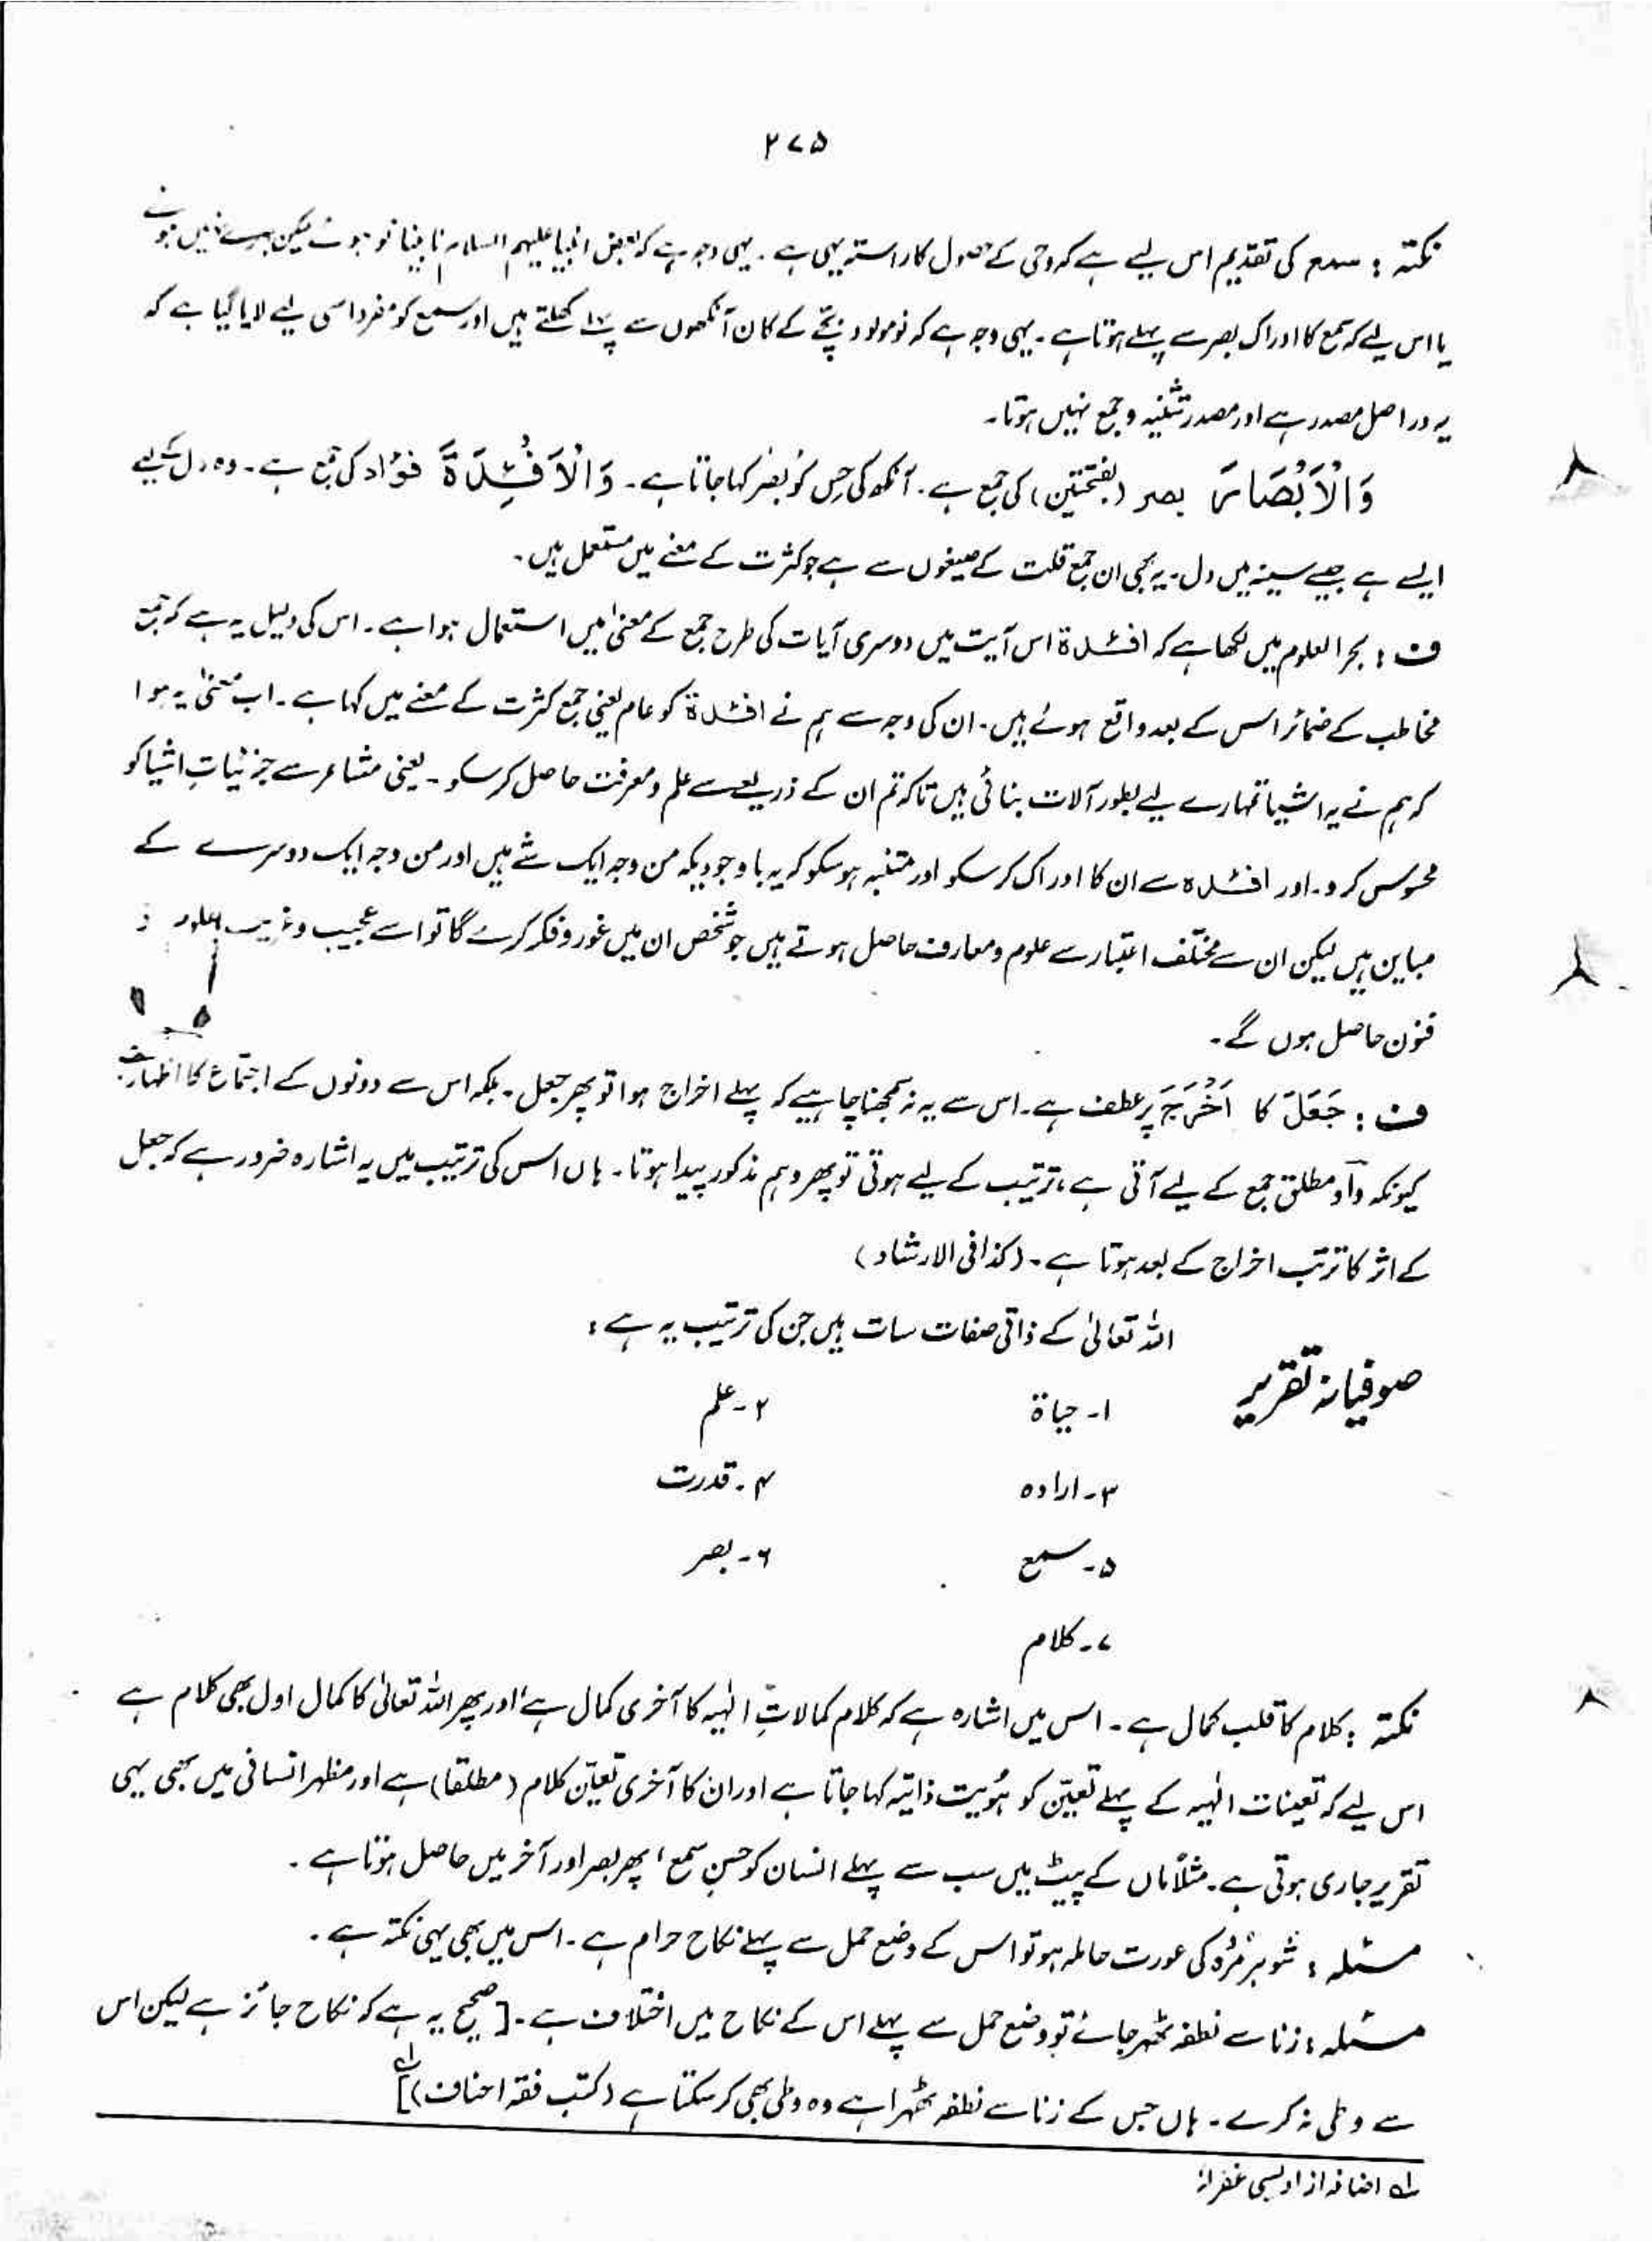 ۲۷۵
نکتہ : سمع کی تقدیم اس لیے ہے کہ وحی کے حصول کا راستہ یہی ہے ۔ یہی وجہ ہے کہ بعض انبیا علیہم السلام نابینا تو ہوئے لیکن بہرے نہیں ہوئے
یا اس لیے کہ سمع کا ادراک بصر سے پہلے ہوتا ہے ۔ یہی وجہ ہے کہ نومولود بچّے کے کان آنکھوں سے پہلے کھلتے ہیں اور سمع کو مفرد اسی لیے لایا گیا ہے کہ
یہ دراصل مصدر ہے اور مصدر تثنیہ و جمع نہیں ہوتا۔
وَالْاَبْصَارَ بصر (بفتحتین) کی جمع ہے ۔ آنکھ کی حِس کو بَصَر کہا جاتا ہے ۔ وَالْاَفْئِدَةَ فؤاد کی جمع ہے ۔ وہ دل کے لیے
ایسے ہے جیسے سینہ میں دل ۔ یہ بھی ان جمع قلت کے صیغوں سے ہے جو کثرت کے معنے میں مستعمل ہیں ۔
ف : بحر العلوم میں لکھا ہے کہ افئدۃ اس آیت میں دوسری آیات کی طرح جمع کے معنیٰ میں استعمال ہوا ہے ۔ اس کی دلیل یہ ہے کہ جمع
مخاطب کے ضمائر اس کے بعد واقع ہوئے ہیں ۔ ان کی وجہ سے ہم نے افئدۃ کو عام یعنی جمع کثرت کے معنے میں کہا ہے ۔ اب معنیٰ یہ ہوا
کہ ہم نے یہ اشیا تمہارے لیے بطور آلات بنائی ہیں تاکہ تم ان کے ذریعے سے علم و معرفت حاصل کر سکو ۔ یعنی مشاعر سے جزئیاتِ اشیا کو
محسوس کرو ۔ اور افئدہ سے ان کا ادراک کر سکو اور متنبہ ہو سکو کہ یہ باوجودیکہ من وجہ ایک شے ہیں اور من وجہ ایک دوسرے کے
مباین ہیں لیکن ان سے مختلف اعتبار سے علوم و معارف حاصل ہوتے ہیں جو شخص ان میں غور و فکر کرے گا تو اسے عجیب و غریب علوم و
فنون حاصل ہوں گے ۔
ف : جَعَلَ کا اَخْرَجَ پر عطف ہے ۔ اس سے یہ نہ سمجھنا چاہیے کہ پہلے اخراج ہوا تو پھر جعل ۔ بلکہ اس سے دونوں کے اجتماع کا اظہار ہے
کیونکہ واؤ مطلق جمع کے لیے آتی ہے ، ترتیب کے لیے ہوتی تو پھر وہم مذکور پیدا ہوتا ۔ ہاں اس کی ترتیب میں یہ اشارہ ضرور ہے کہ جعل
کے اثر کا ترتب اخراج کے بعد ہوتا ہے ۔ (کذا فی الارشاد)
اللہ تعالیٰ کے ذاتی صفات سات ہیں جن کی ترتیب یہ ہے :
صوفیانہ تقریر
۱۔ حیاۃ ۲۔ علم
۳۔ ارادہ ۴۔ قدرت
۵۔ سمع ۶۔ بصر
۷۔ کلام
نکتہ : کلام کا قلب کمال ہے ۔ اس میں اشارہ ہے کہ کلام کمالاتِ الٰہیہ کا آخری کمال ہے ، اور پھر اللہ تعالیٰ کا کمال اول بھی کلام ہے
اس لیے کہ تعینات الٰہیہ کے پہلے تعیّن کو ہُویت ذاتیہ کہا جاتا ہے اور ان کا آخری تعیّن کلام (مطلقا) ہے اور مظہر انسانی میں بھی یہی
تقریر جاری ہوتی ہے ۔ مثلاً ماں کے پیٹ میں سب سے پہلے انسان کو حسِ سمع ، پھر بصر اور آخر میں حاصل ہوتا ہے ۔
مسئلہ : شوہر مُردہ کی عورت حاملہ ہو تو اس کے وضع حمل سے پہلے نکاح حرام ہے ۔ اس میں بھی یہی نکتہ ہے ۔
مسئلہ : زنا سے نطفہ ٹھہر جائے تو وضع حمل سے پہلے اس کے نکاح میں اختلاف ہے ۔ [صحیح یہ ہے کہ نکاح جائز ہے لیکن اس
سے وطی نہ کرے ۔ ہاں جس کے زنا سے نطفہ ٹھہرا ہے وہ وطی بھی کر سکتا ہے (کتب فقہ احناف)]؂۱
؂۱ اضافہ از اویسی غفرلہٗ